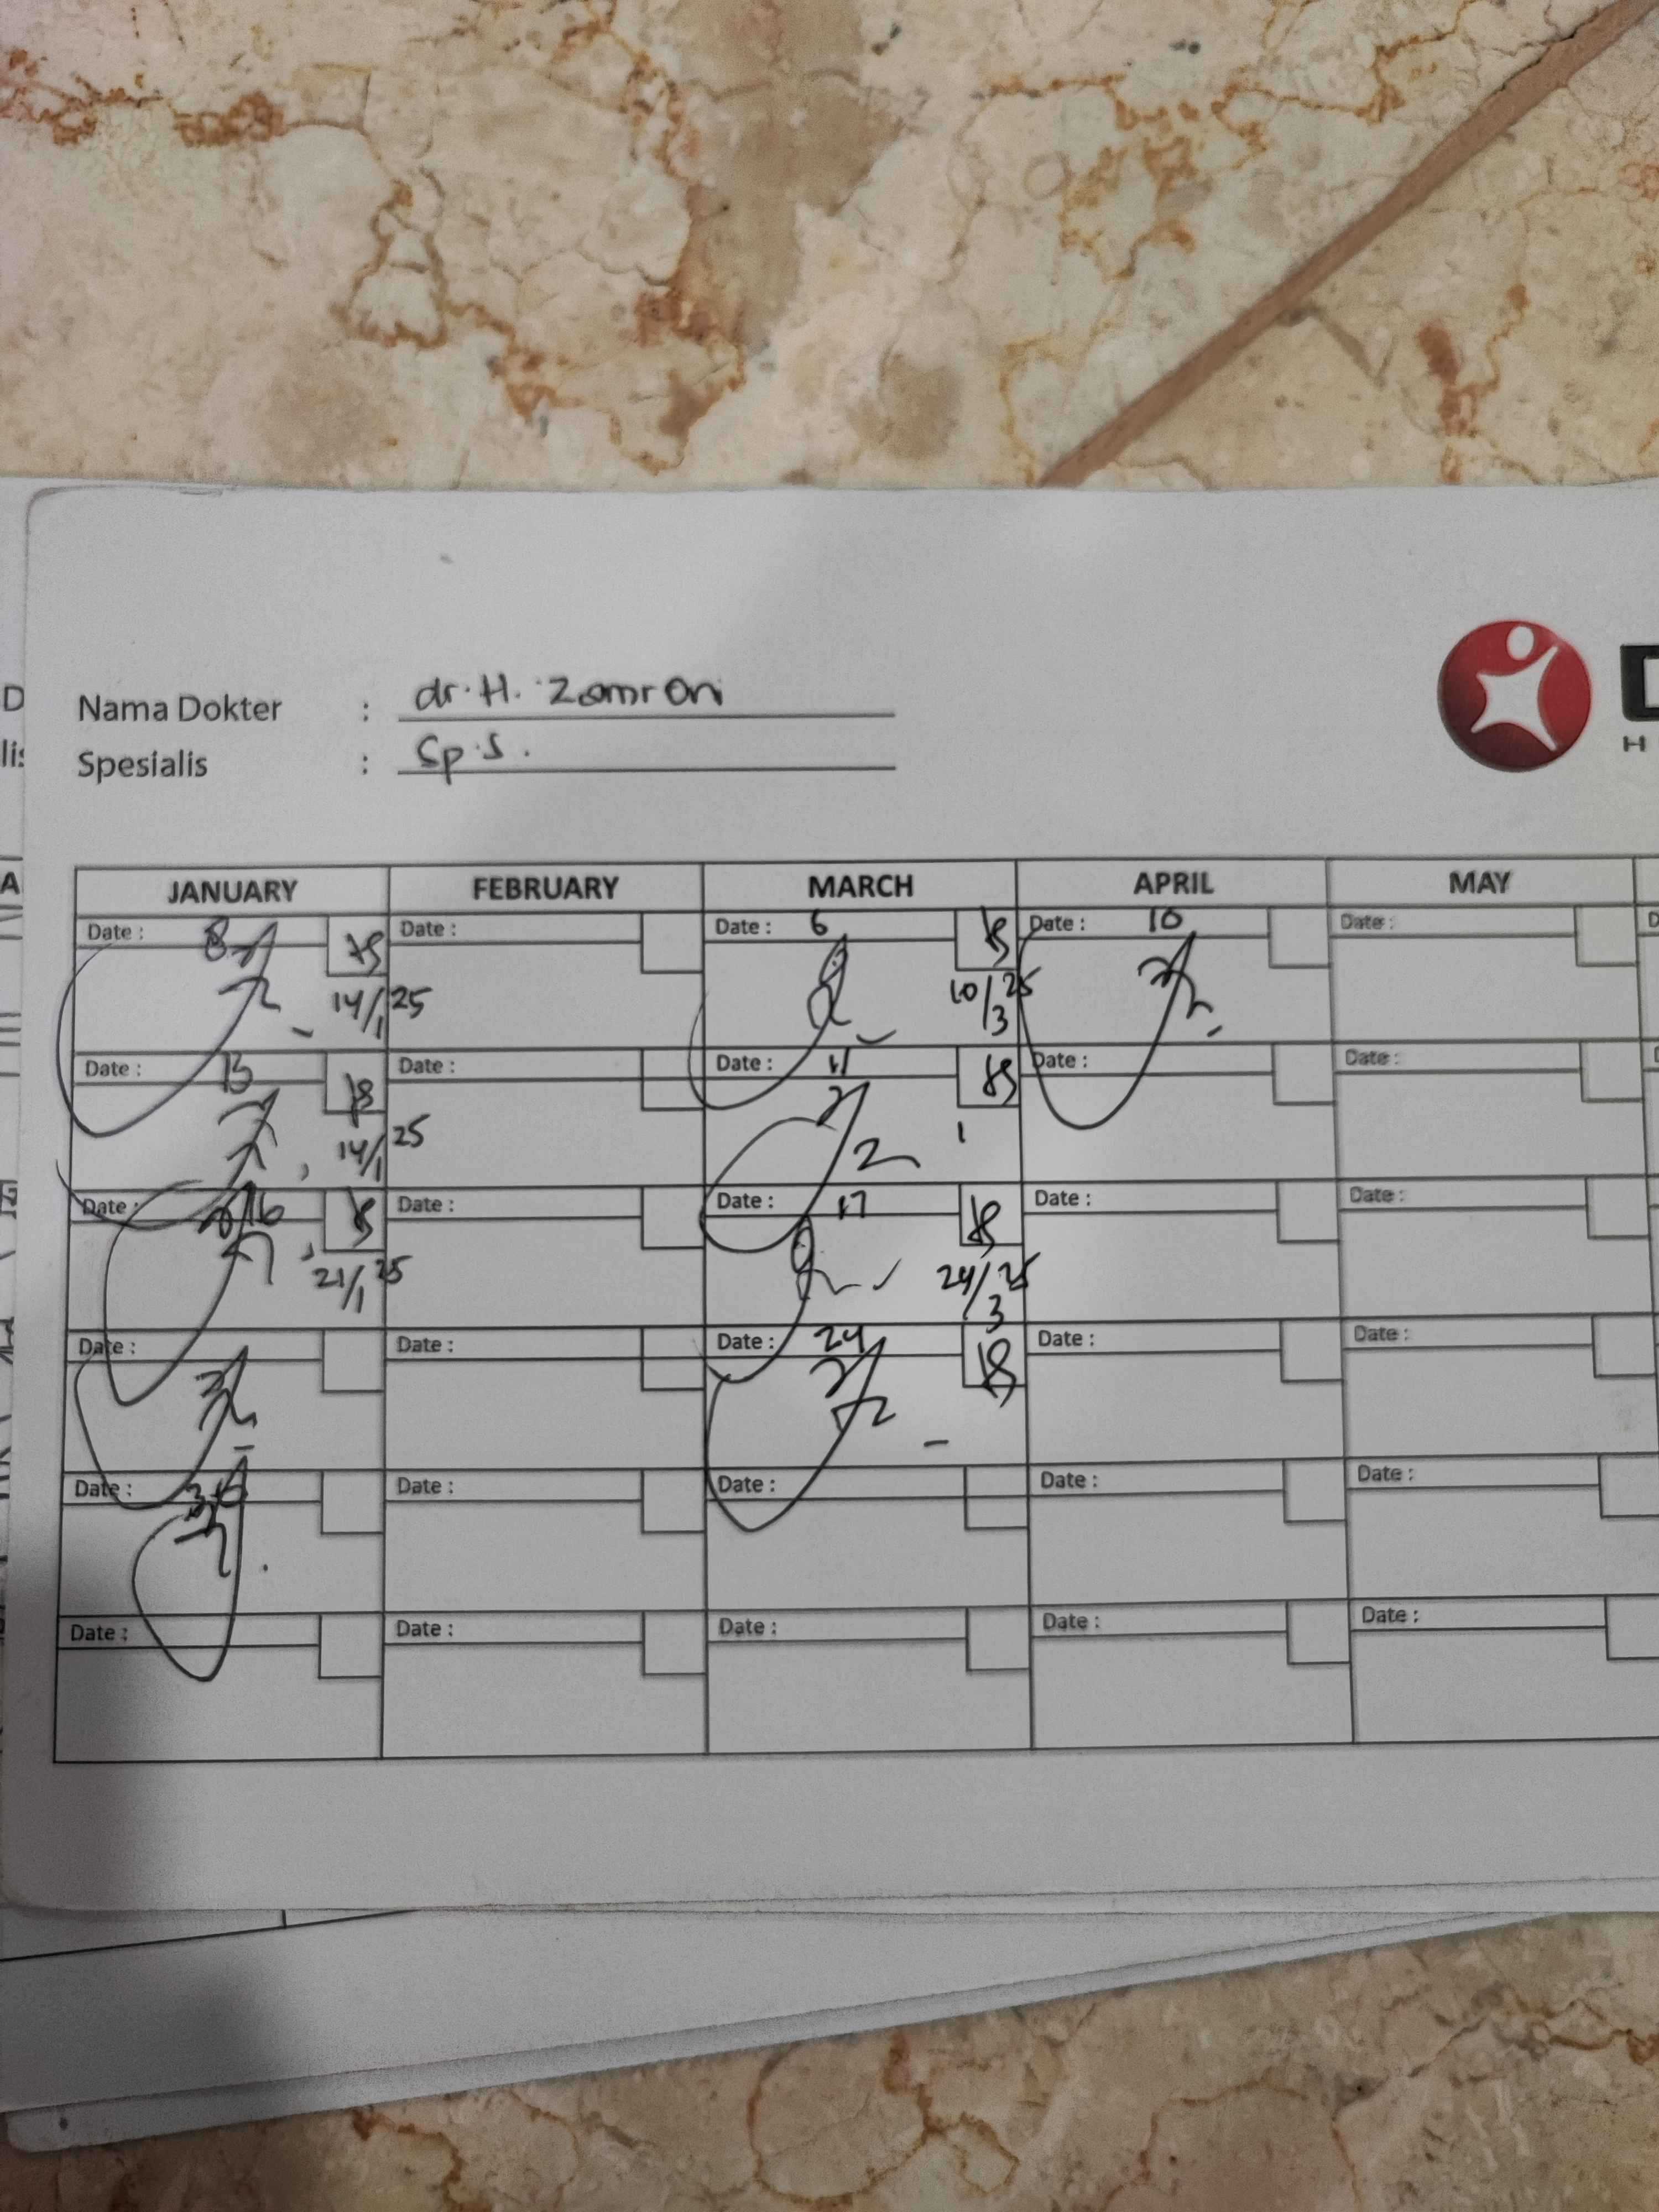 Nama Dokter : dr. H. Zamroni
Spesialis : Sp.S.
D
H
JANUARY FEBRUARY MARCH APRIL MAY
Date : 8 Date : Date : 6 Date : 10 Date :
14/1 25 10/3 25
Date : 13 Date : Date : 11 Date : Date :
14/1 25
Date : 16 Date : Date : 17 Date : Date :
21/1 25 24/3 25
Date : Date : Date : 24 Date : Date :
Date : Date : Date : Date : Date :
Date : Date : Date : Date : Date :